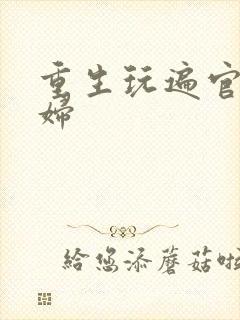 重生玩遍官
婦
給您添蘑菇啦